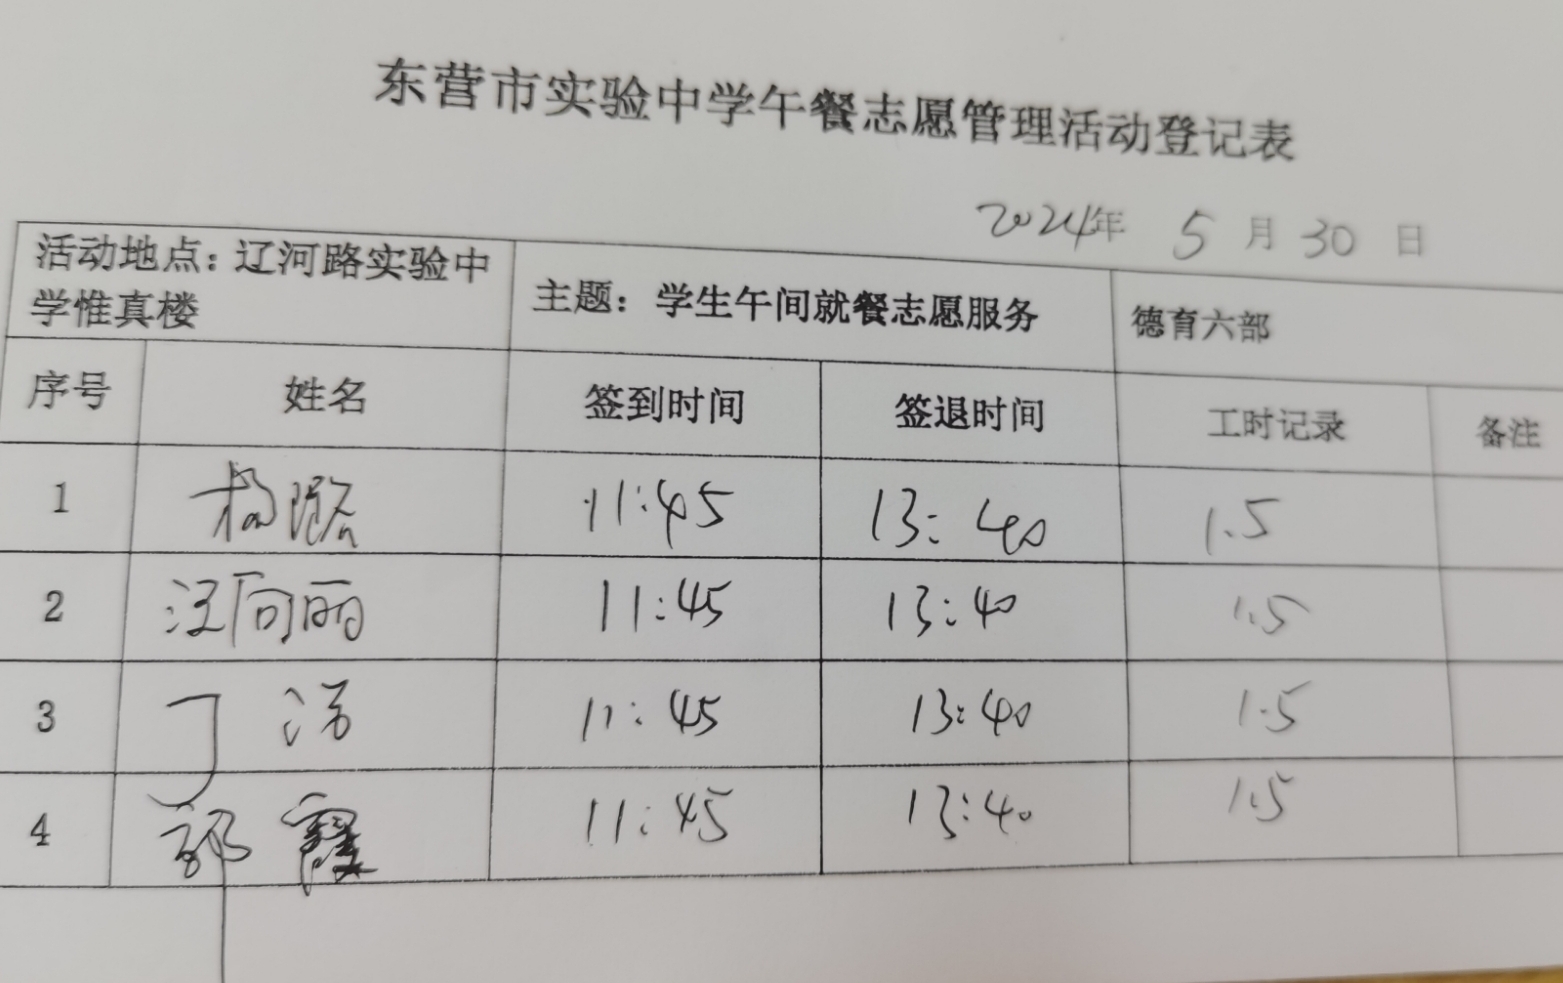 东营市实验中学午餐志愿管理活动登记表
2024年 5 月 30 日
活动地点：辽河路实验中
学惟真楼
主题：学生午间就餐志愿服务
德育六部
序号 姓名 签到时间 签退时间 工时记录 备注
1 杨 11:45 13:40 1.5
2 汪向丽 11:45 13:40 1.5
3 丁 11:45 13:40 1.5
4 郭霞 11:45 13:40 1.5